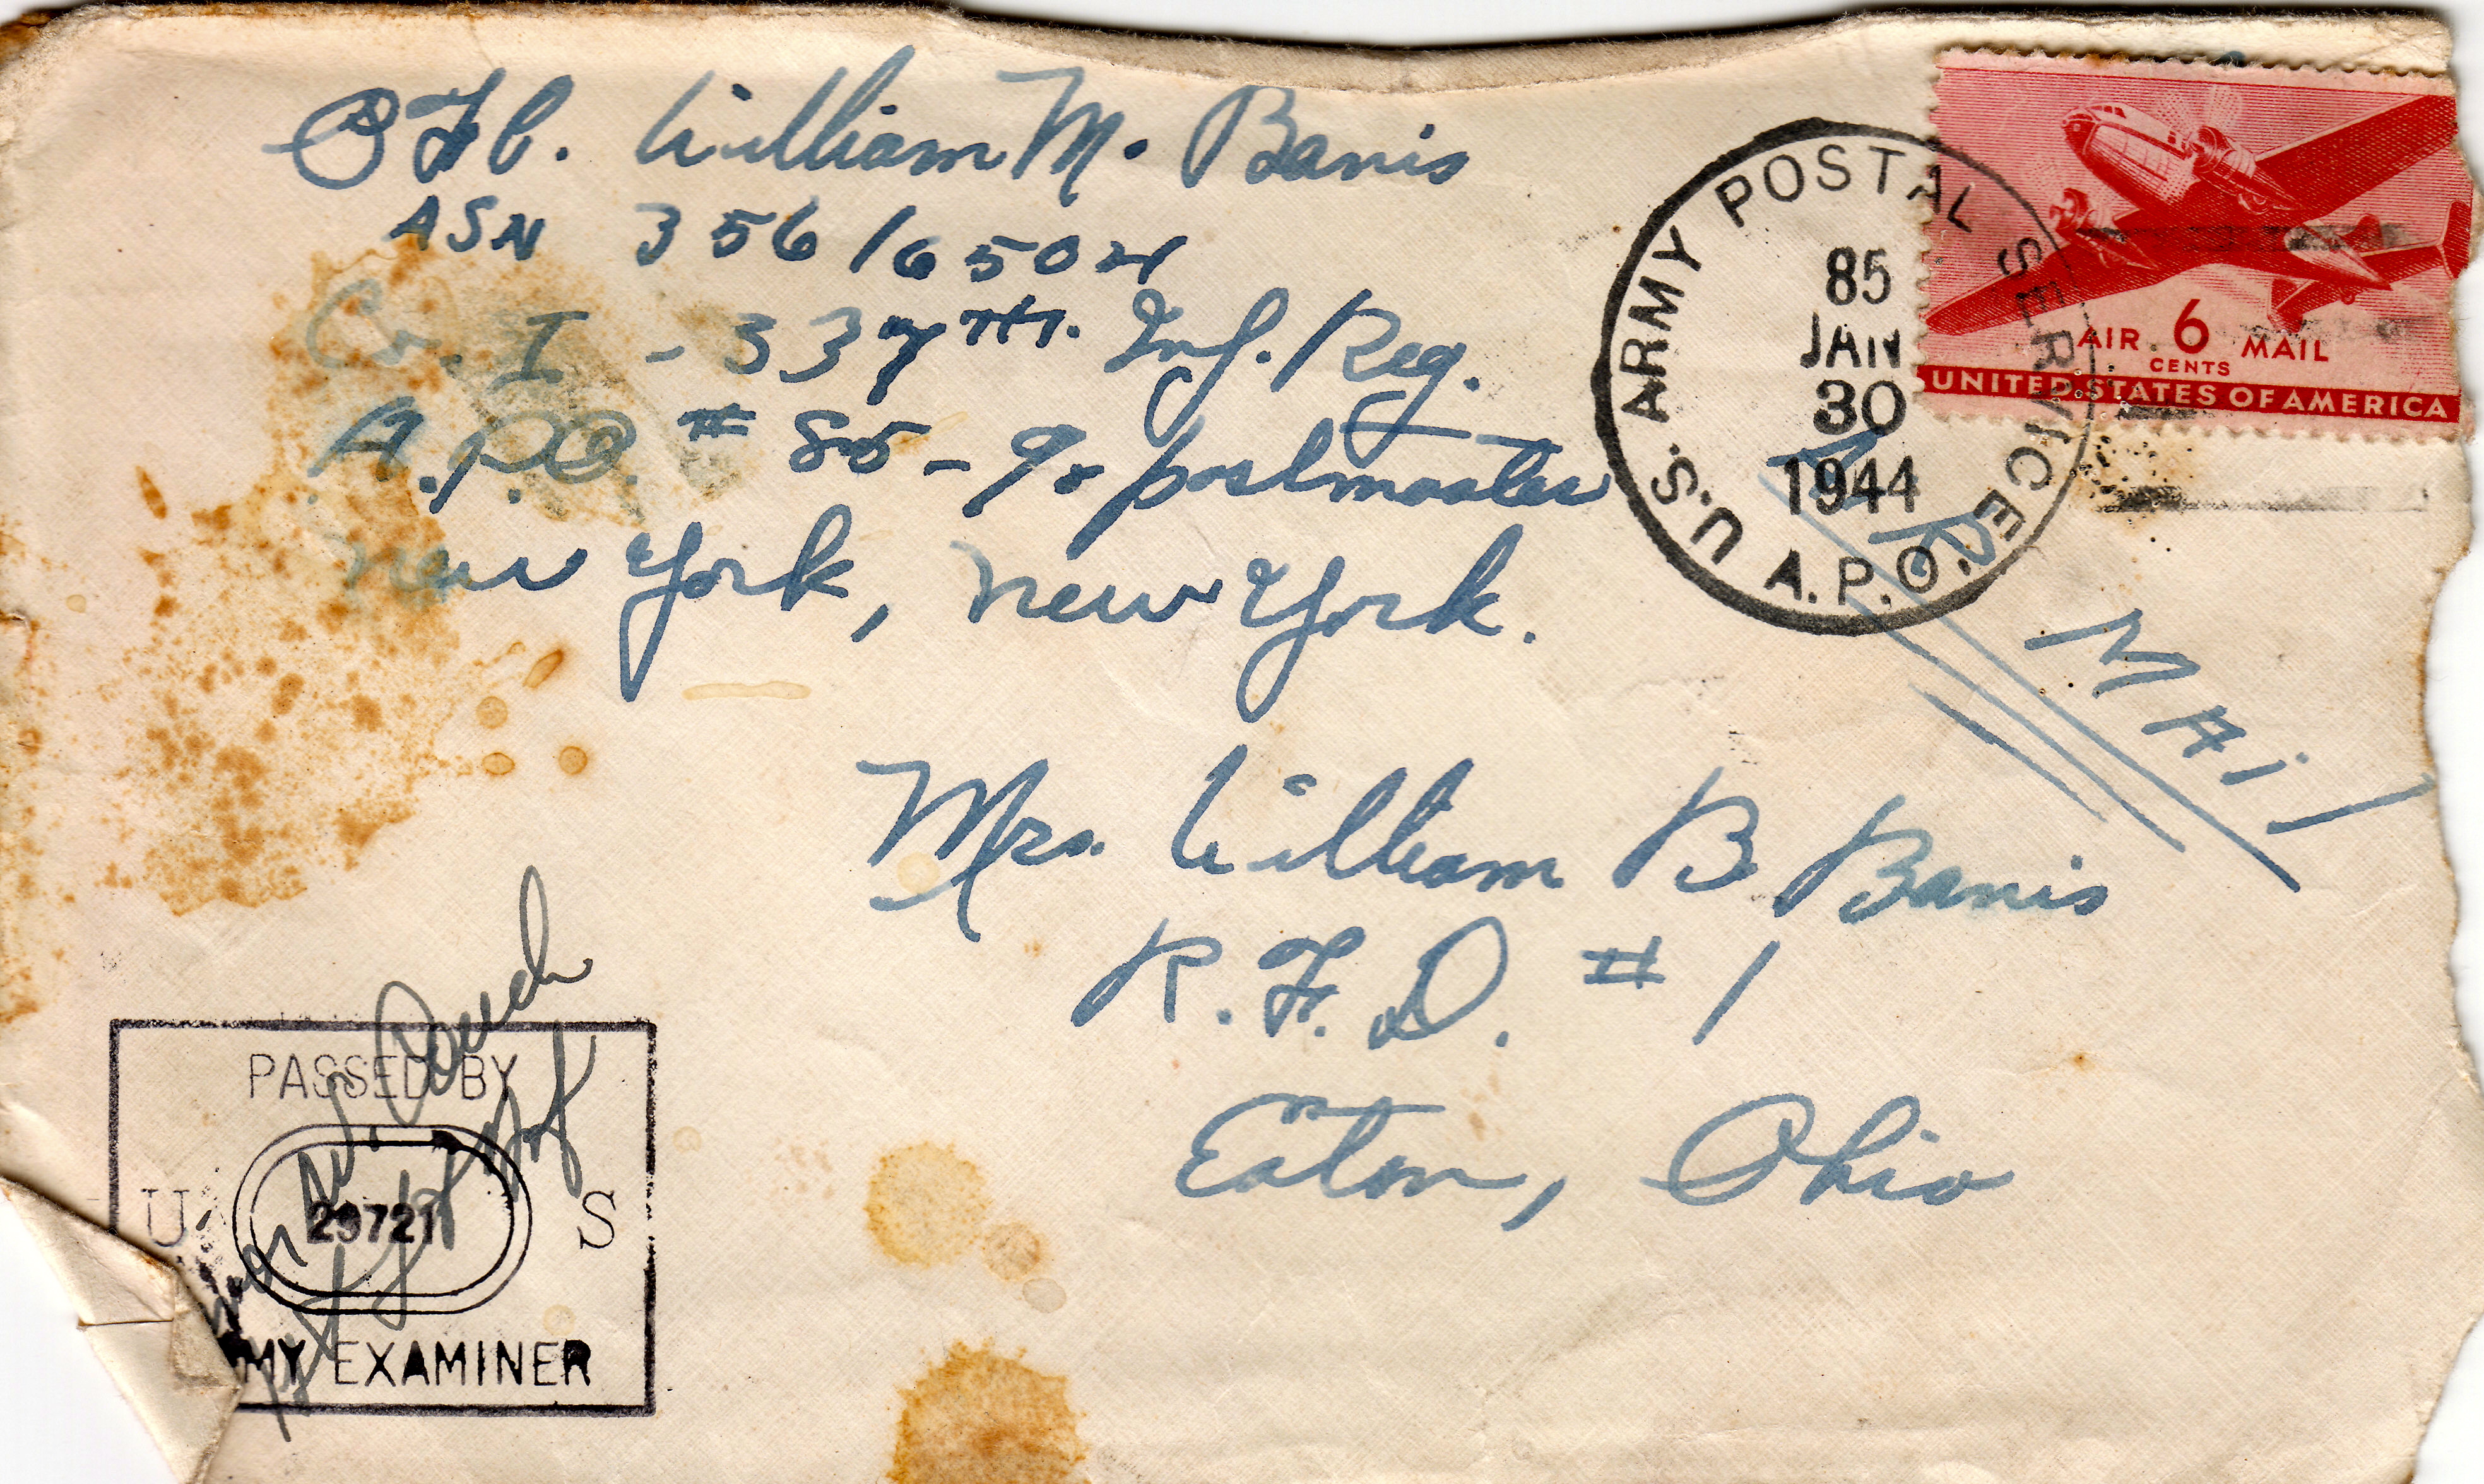 Pfc. William M. Banis
ASN 35616504
Co. I - 337TH. Inf. Reg.
A.P.O. # 85 - c/o postmaster
New York, New York.
U.S. ARMY POSTAL SERVICE
85
JAN
30
1944
A.P.O.
AIR 6 MAIL
CENTS
UNITED STATES OF AMERICA
AiR MAil
Mrs. William B Banis
R.F.D. #1
Eaton, Ohio
W. Couch
Inf
PASSED BY
U S
MY EXAMINER